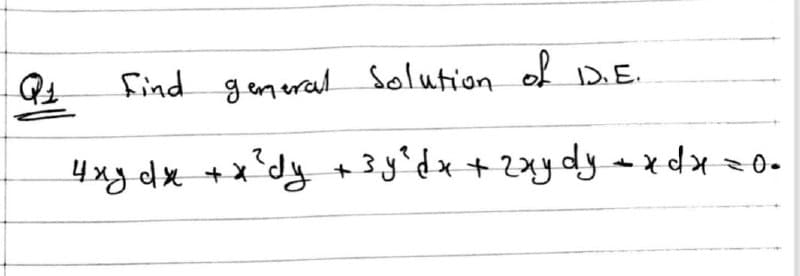 Q1 Find general Solution of D.E.
4xy dx + x²dy + 3y²dx + 2xy dy - x dx = 0.